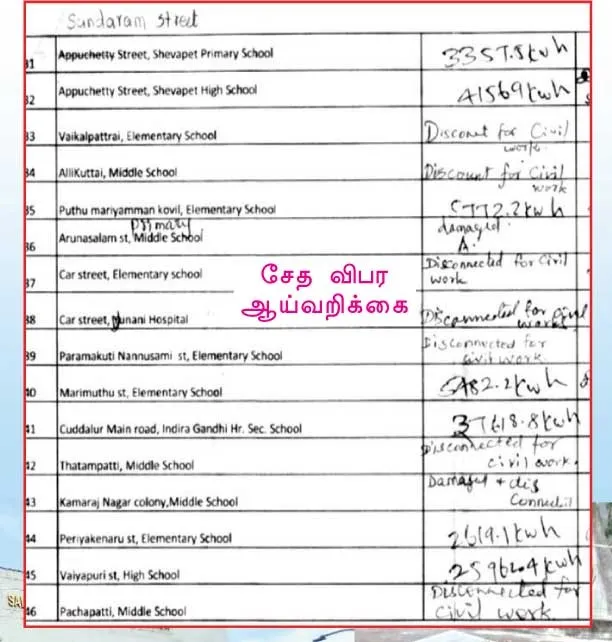 Sundaram Street
31 Appuchetty Street, Shevapet Primary School 3357.8 kwh
32 Appuchetty Street, Shevapet High School 41569 kwh
33 Vaikalpattrai, Elementary School Discount for Civil
work.
34 AlliKuttai, Middle School Discount for Civil
work
35 Puthu mariyamman kovil, Elementary School 5772.2 kwh
primary
36 Arunasalam st, Middle School damaged.
A.
37 Car street, Elementary school Disconnected for Civil
work
சேத விபர
ஆய்வறிக்கை
38 Car street, Yunani Hospital Disconnected for civil
work
39 Paramakuti Nannusami st, Elementary School Disconnected for
civil work.
40 Marimuthu st, Elementary School 5482.2 kwh
41 Cuddalur Main road, Indira Gandhi Hr. Sec. School 37618.8 kwh
42 Thatampatti, Middle School Disconnected for
civil work.
43 Kamaraj Nagar colony,Middle School Damaged + dis
Connected
44 Periyakenaru st, Elementary School 2619.1 kwh
45 Vaiyapuri st, High School 25962.4 kwh
46 Pachapatti, Middle School Disconnected for
civil work